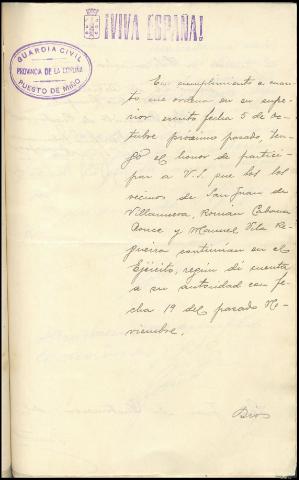 ¡VIVA ESPAÑA!
GUARDIA CIVIL
PROVINCIA DE LA CORUÑA
PUESTO DE MIÑO
En cumplimiento a cuan-
to me ordena en su supe-
rior escrito fecha 5 de Oc-
tubre próximo pasado, ten-
go el honor de partici-
par a V.S. que los dos
vecinos de San Juan de
Villanueva, Roman
y Manuel Vila Re-
gueira continúan en el
Ejército, según di cuenta
a su autoridad con fe-
cha 19 del pasado No-
viembre.
Dios